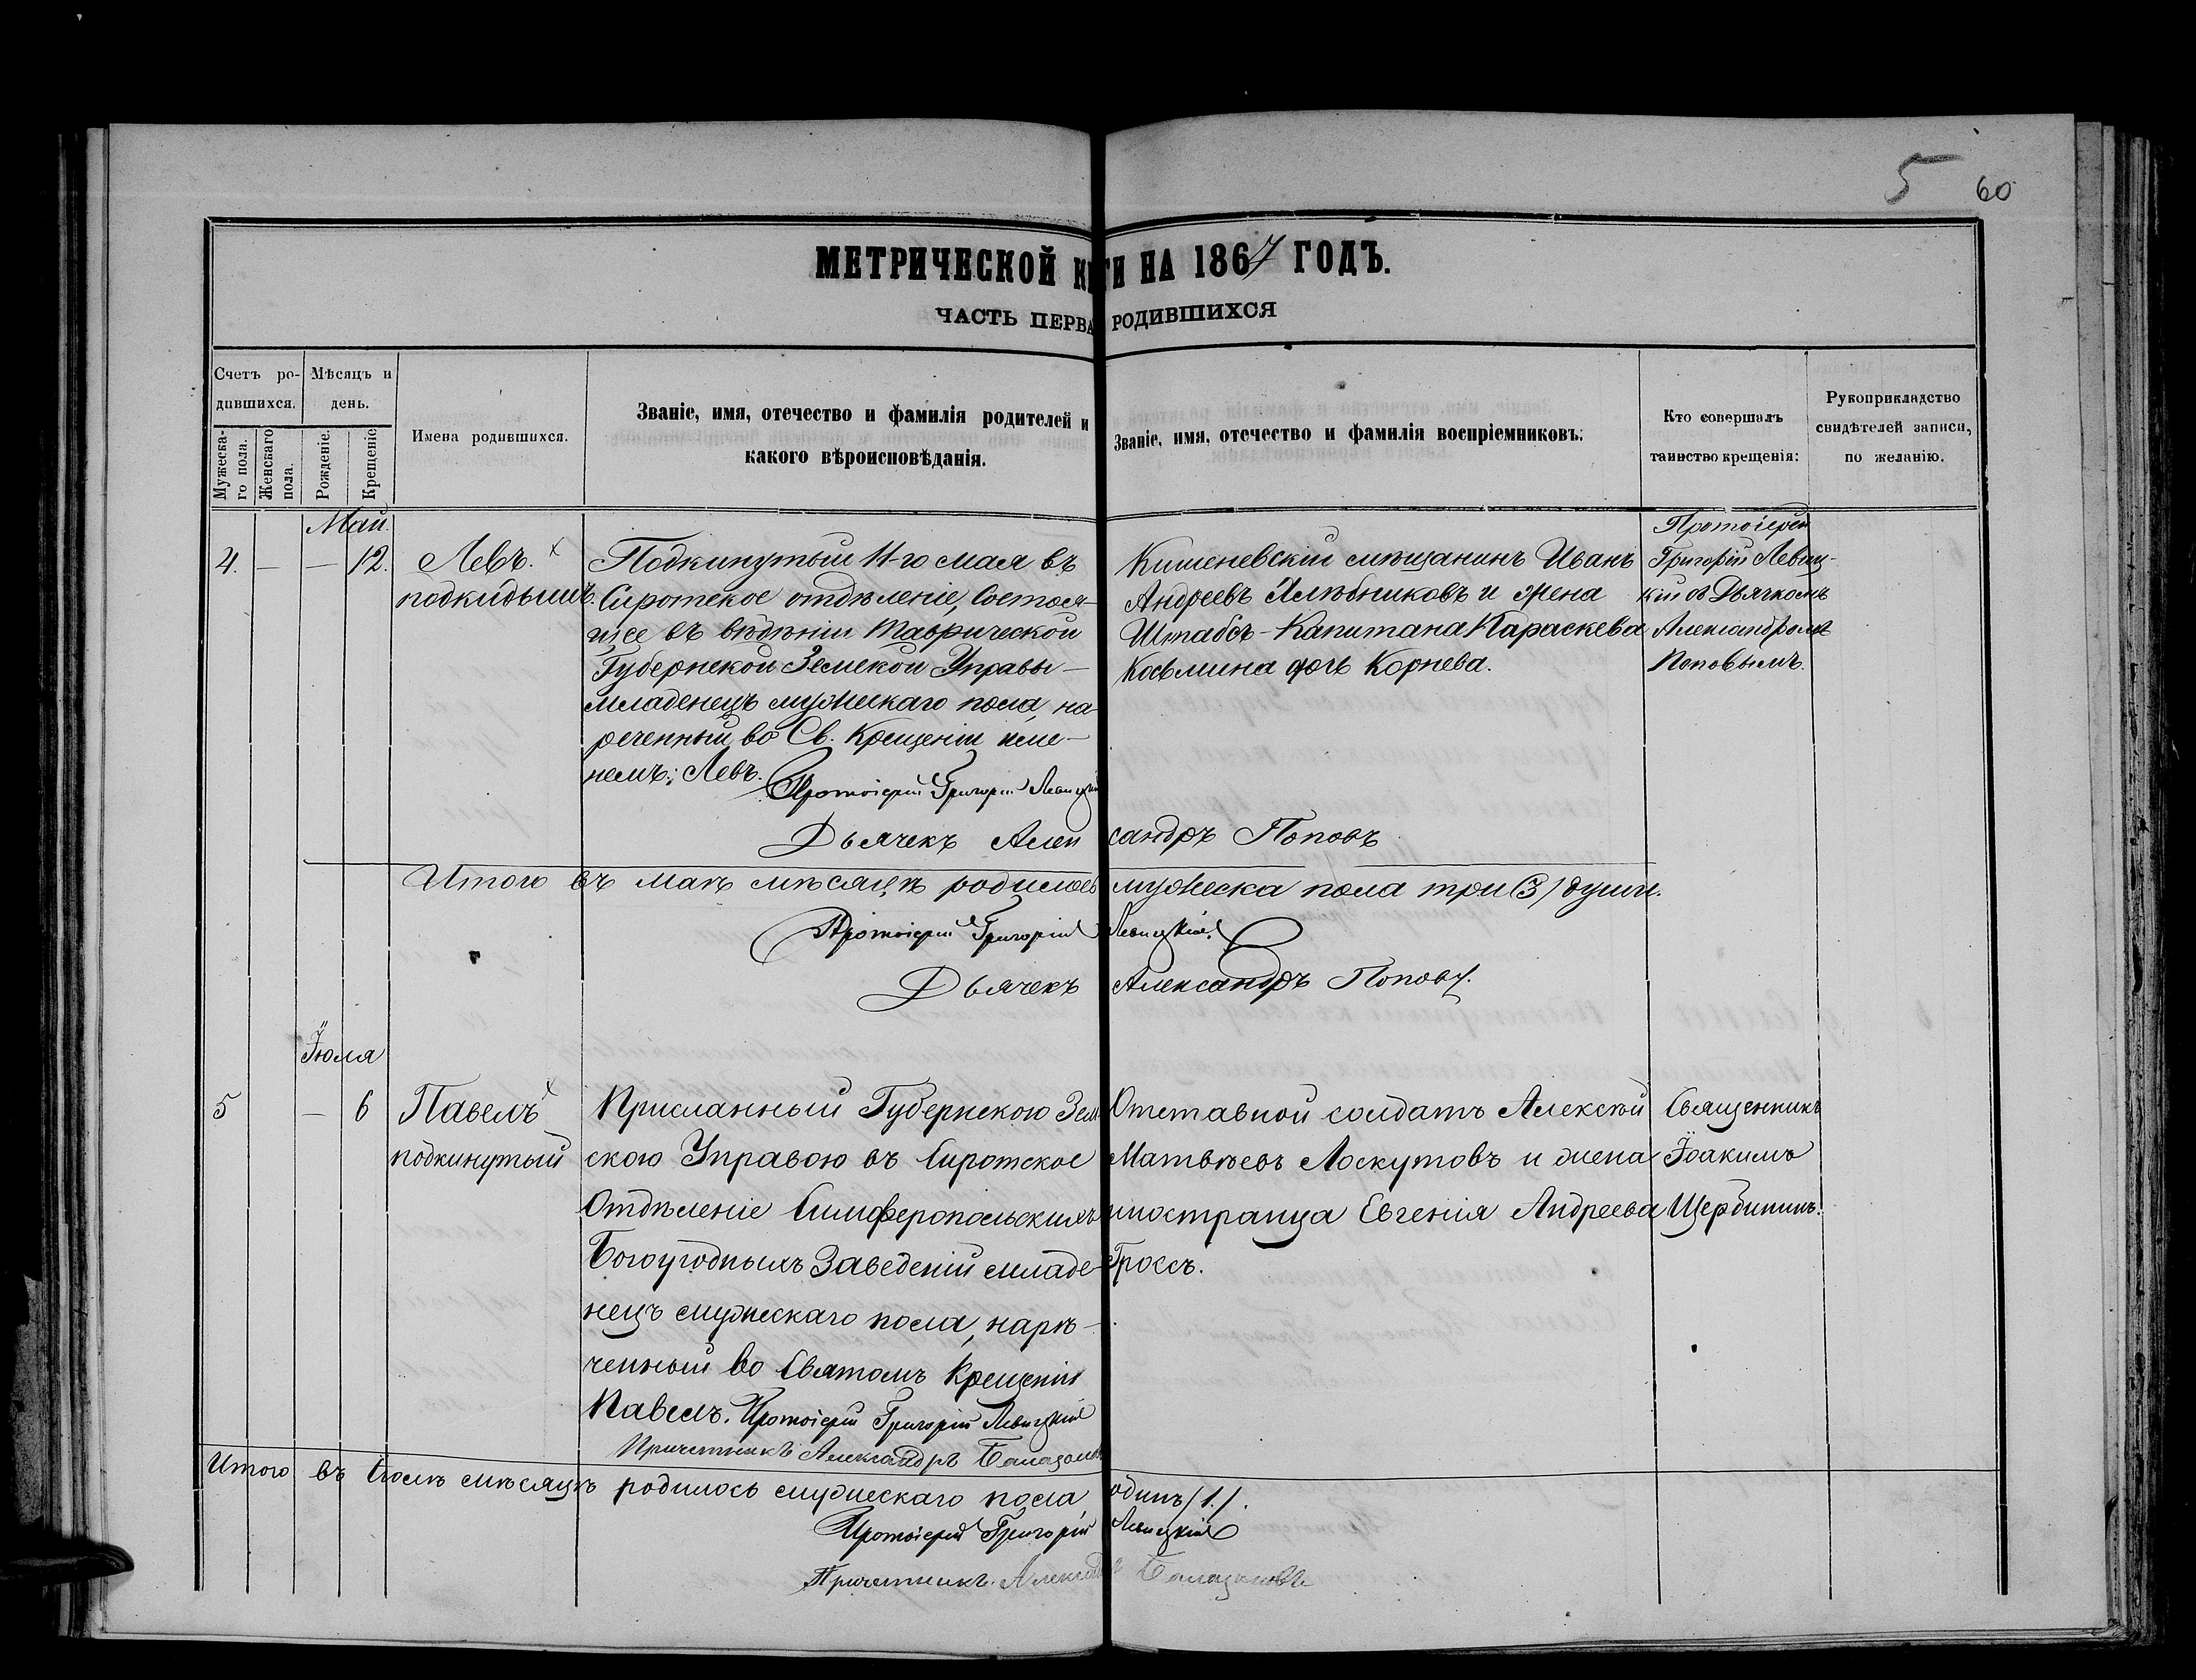 5 60
МЕТРИЧЕСКОЙ К ГИ НА 1867 ГОДЪ.
ЧАСТЬ ПЕРВА РОДИВШИХСЯ
Счетъ ро-
дившихся.
Мужеска-
го пола.
Женскаго
пола.
Мѣсяцъ и
день.
Рожденіе.
Крещеніе
Имена родившихся.
Званіе, имя, отечество и фамилія родителей и
какого вѣроисповѣданія.
Званіе, имя, отечество и фамилія воспріемниковъ.
Кто совершалъ
таинство крещенія:
Рукоприкладство
свидѣтелей записи,
по желанію.
Май.
4. — — 12.
Левъ.
подкидышъ.
Подкинутый 11-го мая въ
Сиротское отдѣленіе, Состоя-
щее въ вѣдѣніи Таврической
Губернской Земской Управы —
младенецъ мужескаго пола, на-
реченный во Св. Крещеніи име-
немъ: Левъ.
Протоіерей Григорій Левицкій
Кишеневскій мѣщанинъ Иванъ
Андреевъ Хлѣбниковъ и жена
Штабсъ-Капитана Параскева
Косьмина дочь Корнева.
Протоіерей
Григорій Левиц-
кій съ Дьячкомъ
Александромъ
Поповымъ.
Дьячекъ Александръ Поповъ
Итого въ маѣ мѣсяцѣ родилось мужеска пола три (3) души.
Протоіерей Григорій Левицкій.
Дьячекъ Александръ Поповъ.
Іюля
5 — 6
Павелъ
подкинутый
Присланный Губернскою Зем
скою Управою въ Сиротское
Отдѣленіе Симферопольскихъ
Богоугодныхъ Заведеній младе-
нецъ мужескаго пола, нарѣ-
ченный во Святомъ Крещеніи
Павелъ. Протоіерей Григорій Левицкій
Причетникъ Александръ
Отставной солдатъ Алексѣй
Матвѣевъ Лоскутовъ и жена
иностранца Евгенія Андреева
Гроссъ.
Священникъ
Іоакимъ
Щербининъ.
Итого въ Іюлѣ мѣсяцѣ родилось мужескаго пола одинъ /1./.
Протоіерей Григорій Левицкій
Причетникъ Александръ